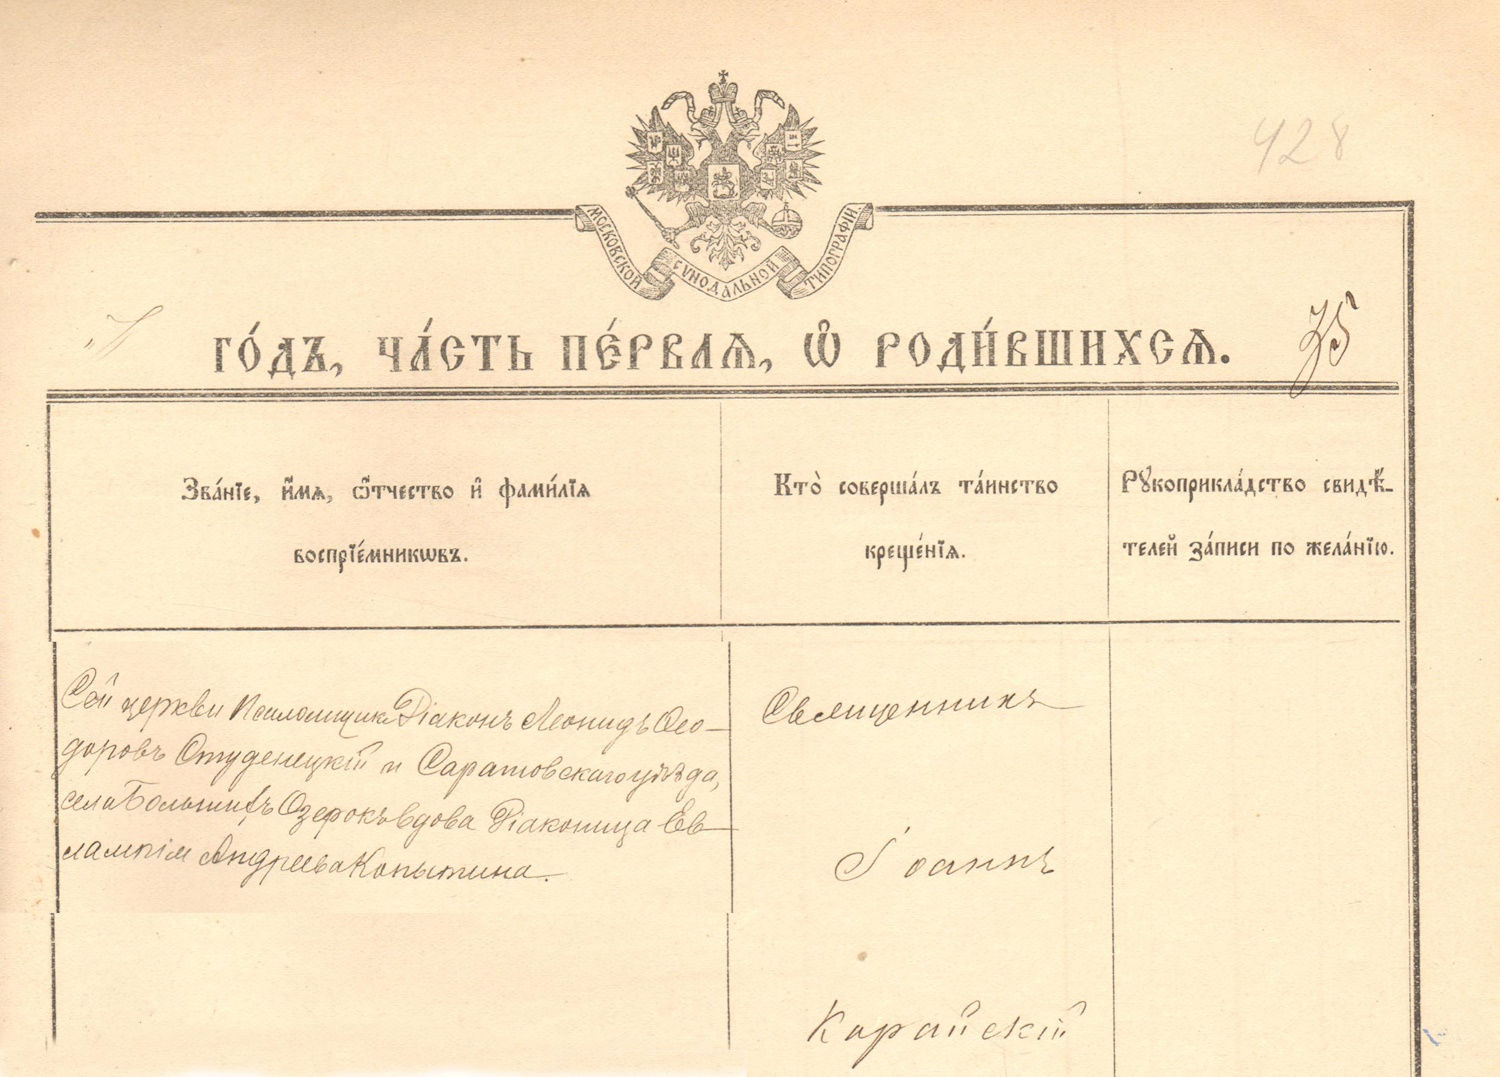 428
МОСКОВСКОЙ СѴНОДАЛЬНОЙ ТИПОГРАФІИ
ГО́ДЪ, ЧА́СТЬ ПЕ́РВАѦ, Ѽ РОДИ́ВШИХСѦ. 75
Зва́нїе, и҆́мѧ, ѻ҆́тчество и҆ фами́лїѧ
воспрїе́мникѡвъ.
Кто̀ соверша́лъ та́инство
креще́нїѧ.
Рꙋкоприкла́дство свидѣ́-
телей за́писи по жела́нїю.
Сей церкви Псаломщикъ Діаконъ Леонидъ Ѳео-
доровъ Студенецкій и Саратовскаго уѣзда,
села Большихъ Озерокъ вдова Діаконица Ев-
лампія Андреева Копытина.
Священникъ
Іоаннъ
Карайскій